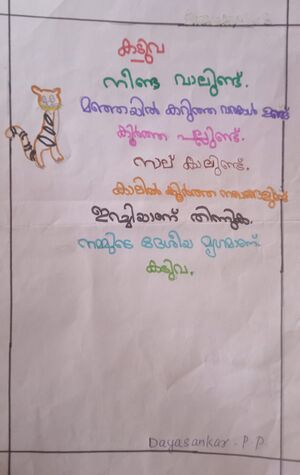 കടുവ
നീണ്ട വാലുണ്ട്.
മഞ്ഞയിൽ കറുത്ത വരകൾ ഉണ്ട്
കൂർത്ത പല്ലുണ്ട്.
നാല് കാലുണ്ട്.
കാലിൽ കൂർത്ത നഖങ്ങളുണ്ട്
ഇറച്ചിയാണ് തിന്നുക.
നമ്മുടെ ദേശീയ മൃഗമാണ്
കടുവ.
Dayasankar - P P